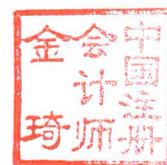 中國注册
会计师
金琦